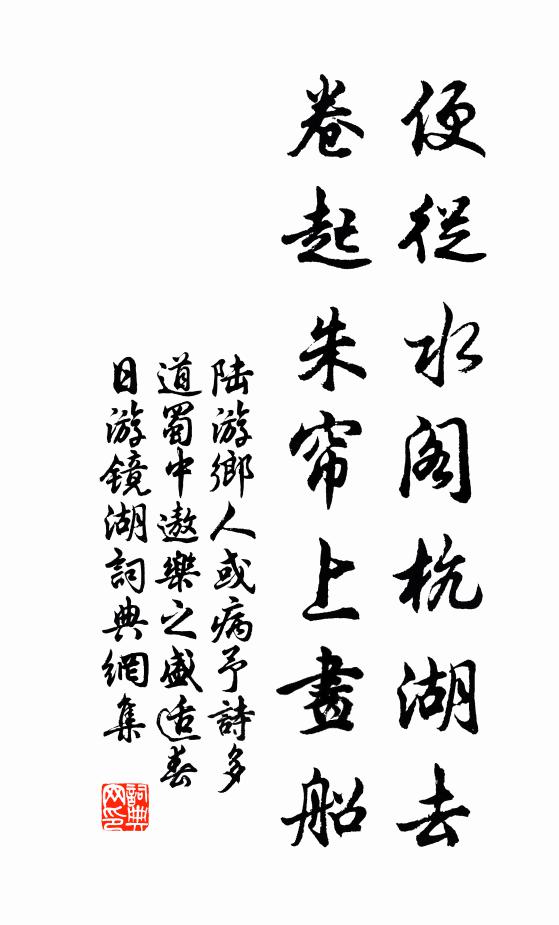 便從水阁杭湖去
卷起朱帘上畫船
陆游鄉人或病予詩多
道蜀中遨樂之盛适春
日游镜湖詞典網集
詞典网印